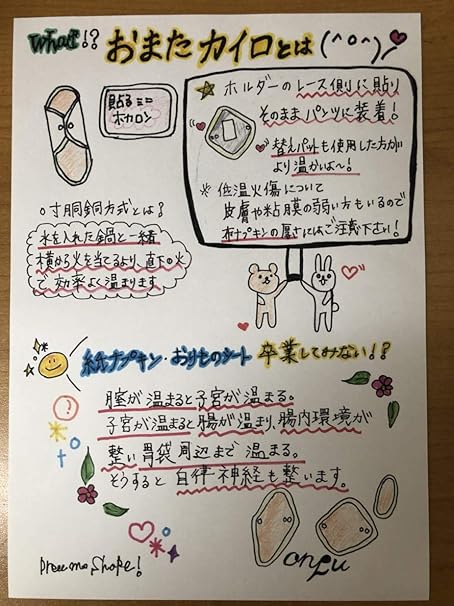 What!? おまたカイロとは(^o^)
貼るミニ
ホカロン
ホルダーのレース側に貼り
そのままパンツに装着!
替えパットも使用した方が
より温かいよ〜!
※低温火傷について
皮膚や粘膜の弱い方もいるので
布ナプキンの厚さにはご注意下さい!
○寸胴鍋方式とは?
水を入れた鍋と一緒
横から火を当てるより、直下の火
で効率よく温まります
紙ナプキン・おりものシート 卒業してみない!?
膣が温まると子宮が温まる。
子宮が温まると腸が温まり、腸内環境が
整い胃袋周辺まで温まる。
そうすると自律神経も整います。
onpu